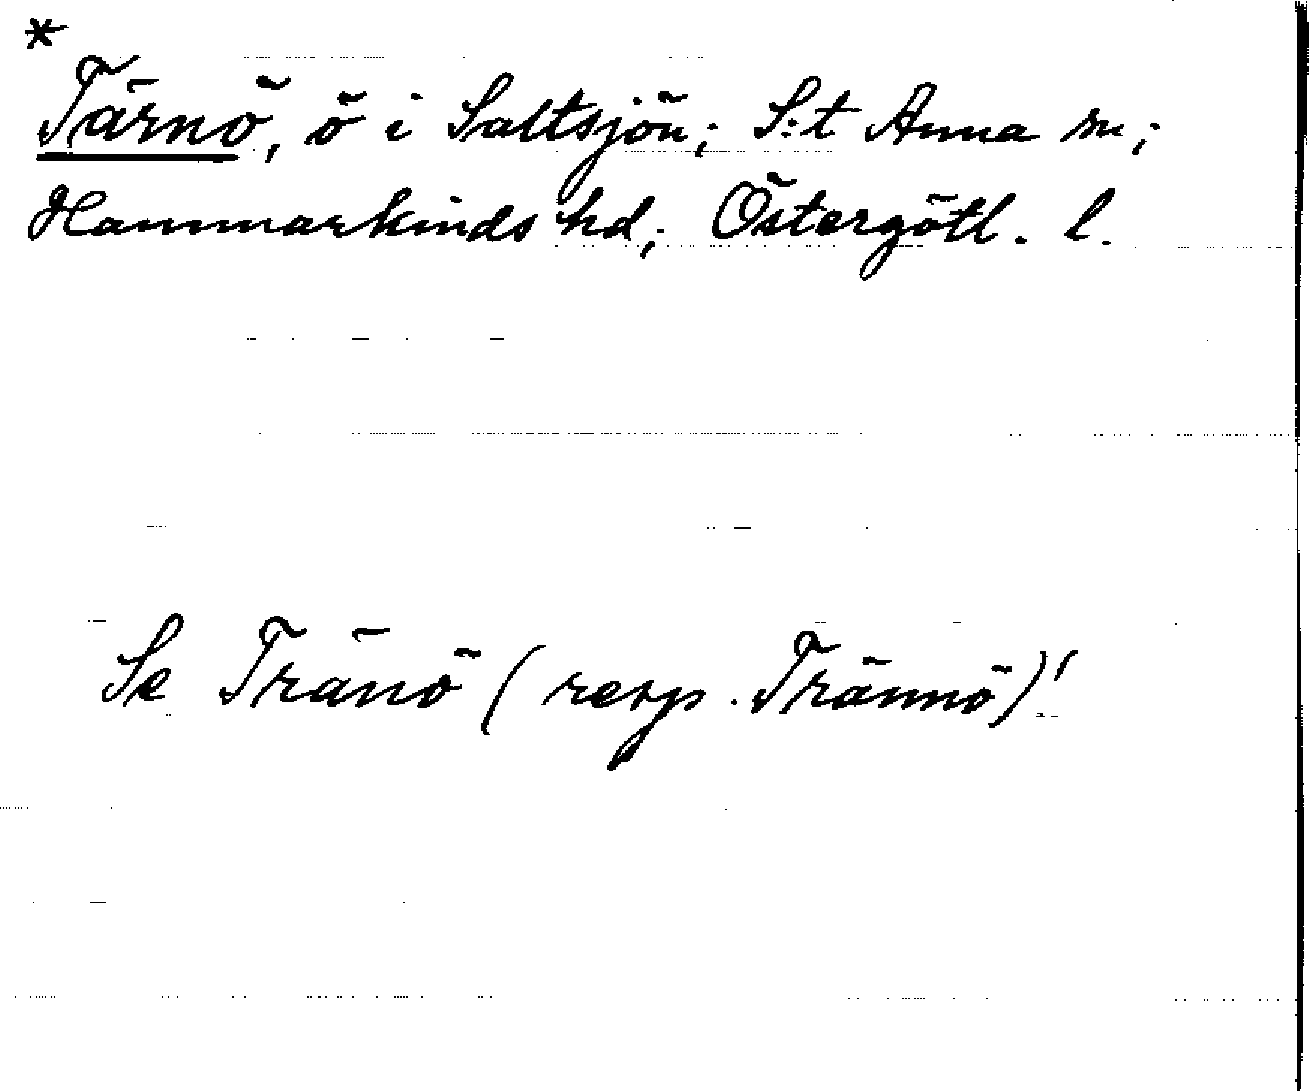 *
Tärnö, ö i Saltsjön; S:t Anna sn;
Hammarkinds hd; Östergötl. l.
Se Tränö (resp. Trännö)!